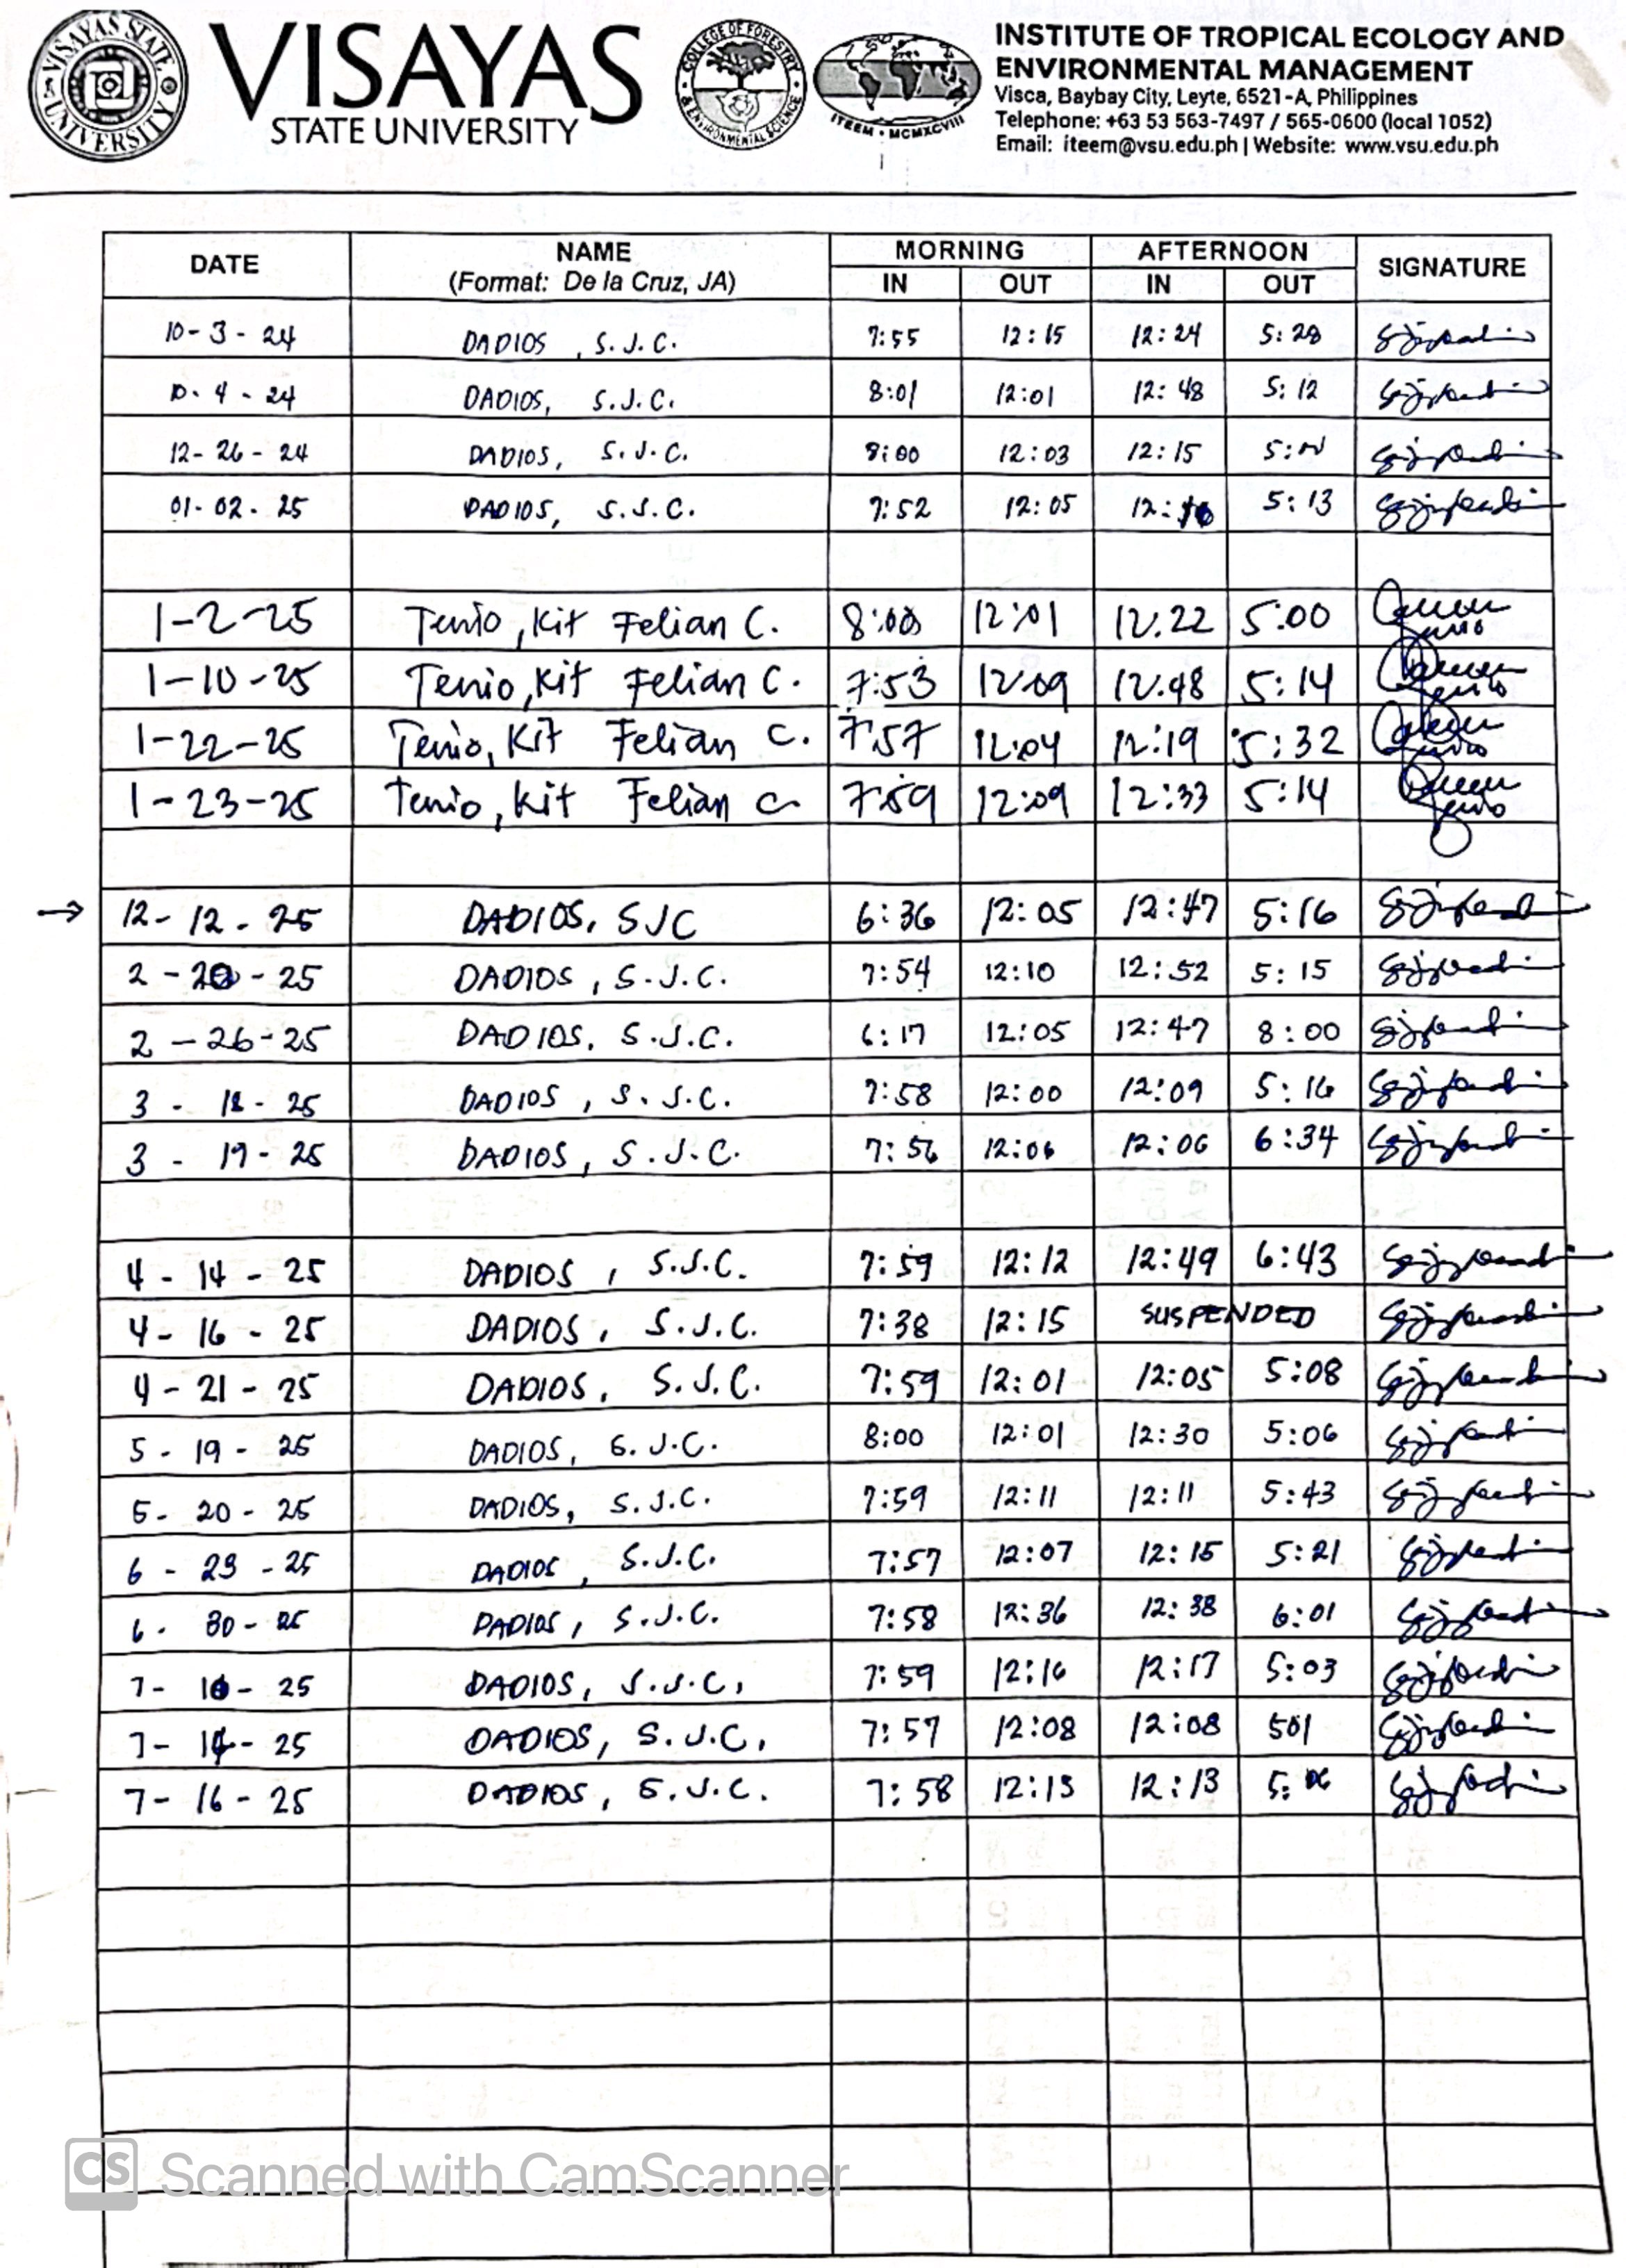 VISAYAS STATE UNIVERSITY
VISAYAS
STATE UNIVERSITY
COLLEGE OF FORESTRY & ENVIRONMENTAL SCIENCE
ITEEM • MCMXCVIII
INSTITUTE OF TROPICAL ECOLOGY AND
ENVIRONMENTAL MANAGEMENT
Visca, Baybay City, Leyte, 6521-A, Philippines
Telephone: +63 53 563-7497 / 565-0600 (local 1052)
Email: iteem@vsu.edu.ph | Website: www.vsu.edu.ph
DATE NAME MORNING AFTERNOON SIGNATURE
(Format: De la Cruz, JA) IN OUT IN OUT
10-3-24 DADIOS, S.J.C. 7:55 12:15 12:24 5:28
10.4-24 DADIOS, S.J.C. 8:01 12:01 12:48 5:12
12-26-24 DADIOS, S.J.C. 8:00 12:03 12:15
01-02.25 DADIOS, S.J.C. 7:52 12:05 5:13
1-2-25 Tenio, Kit Felian C. 8:00 12:01 12.22 5:00
1-10-25 Tenio, Kit Felian C. 7:53 12:09 12.48 5:14
1-22-25 Tenio, Kit Felian C. 7:57 12:04 12:19 5:32
1-23-25 Tenio, Kit Felian C. 7:59 12:09 12:33 5:14
→ 12-12-25 DADIOS, SJC 6:36 12:05 12:47 5:16
2-20-25 DADIOS, S.J.C. 7:54 12:10 12:52 5:15
2-26-25 DADIOS, S.J.C. 6:17 12:05 12:47 8:00
3-18-25 DADIOS, S.J.C. 7:58 12:00 12:09 5:16
3-19-25 DADIOS, S.J.C. 7:56 12:06 12:06 6:34
4-14-25 DADIOS, S.J.C. 7:59 12:12 12:49 6:43
4-16-25 DADIOS, S.J.C. 7:38 12:15 SUSPENDED
4-21-25 DADIOS, S.J.C. 7:59 12:01 12:05 5:08
5-19-25 DADIOS, S.J.C. 8:00 12:01 12:30 5:06
5-20-25 DADIOS, S.J.C. 7:59 12:11 12:11 5:43
6-23-25 DADIOS, S.J.C. 7:57 12:07 12:15 5:21
6-30-25 DADIOS, S.J.C. 7:58 12:36 12:38 6:01
7-10-25 DADIOS, S.J.C. 7:59 12:16 12:17 5:03
7-14-25 DADIOS, S.J.C. 7:57 12:08 12:08 501
7-16-25 DADIOS, S.J.C. 7:58 12:13 12:13 5:06
CS Scanned with CamScanner